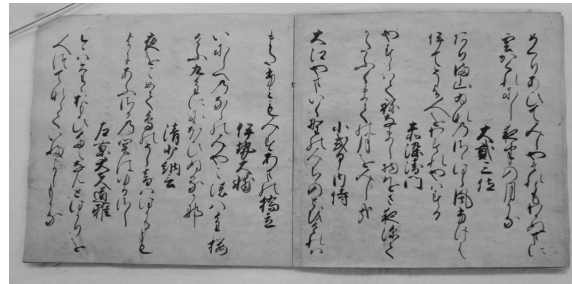 めくりあひてみしやそれともわかぬまに
雲かくれにし夜半の月かな
大貳三位
ありま山ゐなのさゝ原風ふけは
いてそよ人をわすれやはする
赤染衛門
やすらはてねなまし物をさ夜深て
かたふくまての月をみし哉
小式部内侍
大江やまいく野のみちのとをけれは
またふみもみすあまの橋立
伊勢大輔
いにしへのならのみやこの八重桜
けふ九重ににほひぬるかな
清少納言
夜をこめて鳥のそらねははかるとも
よにあふさかの関はゆるさし
左京大夫道雅
今はたゝおもひたえなんとはかりを
人つてならていふよしもかな